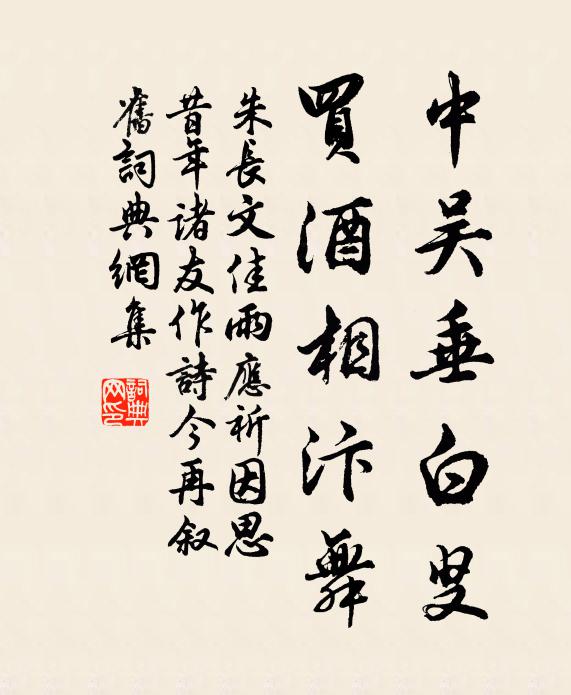 中吴垂白叟
買酒相汴舞
朱長文佳雨應祈因思
昔年诸友作詩今再叙
舊詞典網集
詞典網印